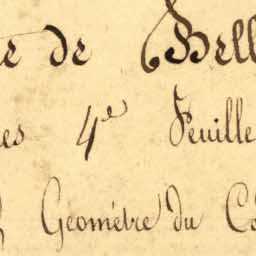 e de Bell
es 4e Feuille
Géomètre du C